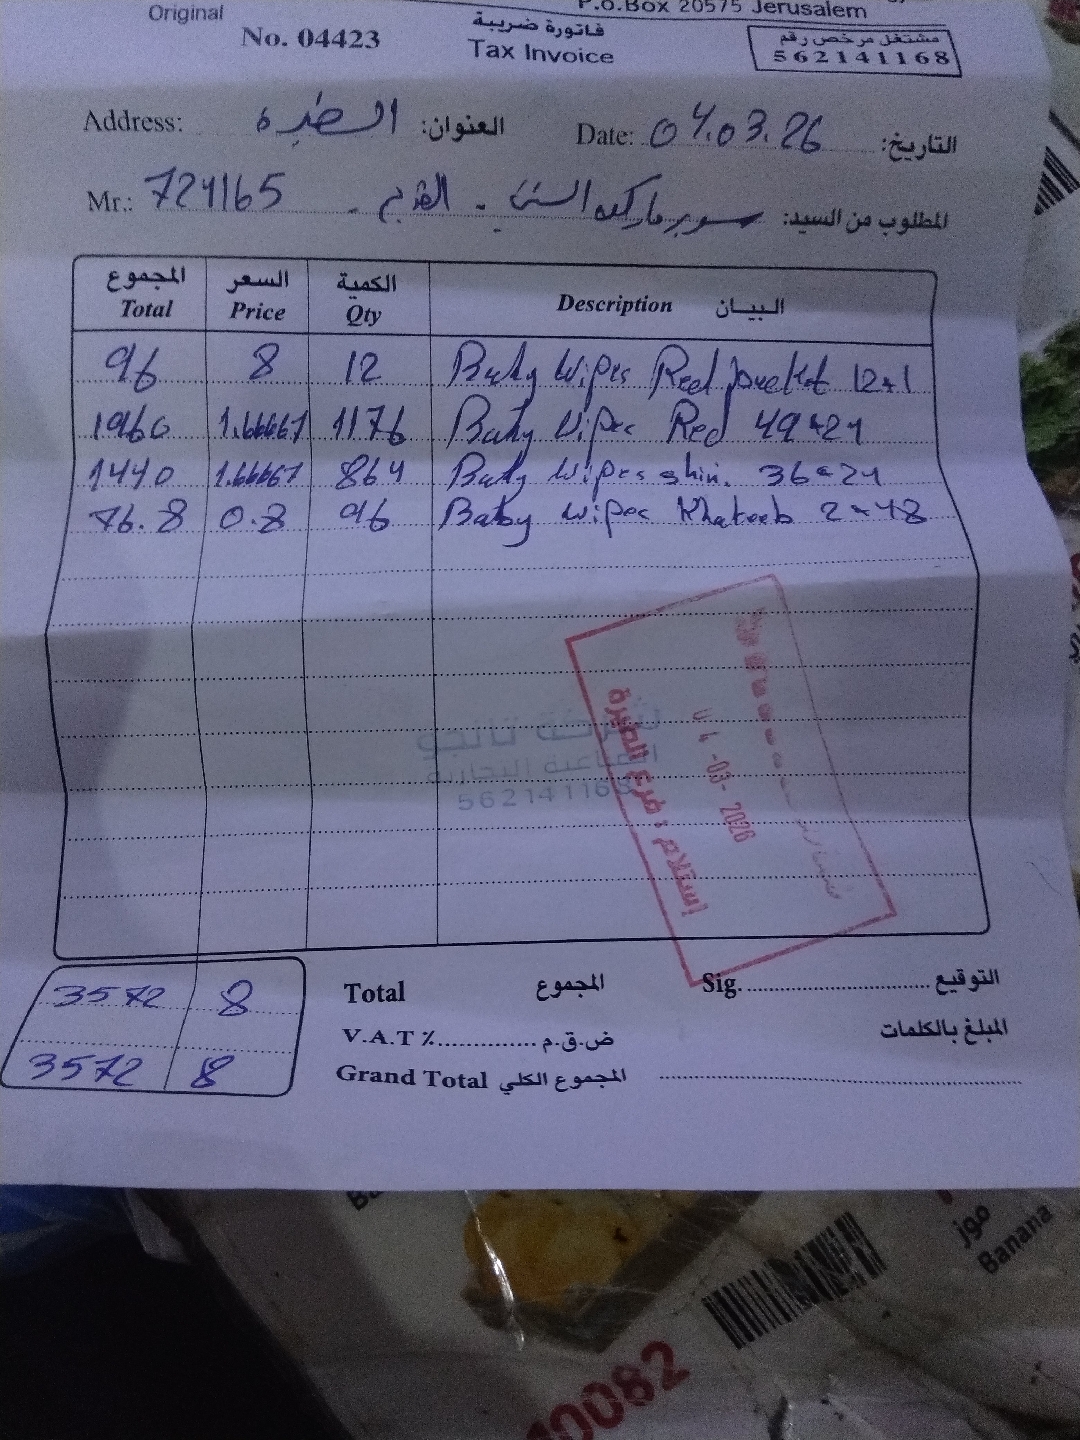 P.o.Box 20575 Jerusalem
Original
No. 04423
فاتورة ضريبة
Tax Invoice
مشتغل مرخص رقم
562141168
Address: العنوان:
Date: 04.03.26 التاريخ:
Mr.: 724165 سوبر ماركت المطلوب من السيد:
المجموع السعر الكمية
Total Price Qty Description البيان
96 8 12 Baby Wipes Red pocket 12*1
1960 1.66667 1176 Baby Wipes Red 49*24
1440 1.66667 864 Baby Wipes skin. 36*24
76.8 0.8 96 Baby wipes Khateeb 2*48
شركة تانجو
الصناعية التجارية
562141168
04-03-2026
إستلام : فرع
3572 8 Total المجموع Sig. التوقيع
V.A.T٪ ض.ق.م المبلغ بالكلمات
3572 8 Grand Total المجموع الكلي
موز
Banana
10082